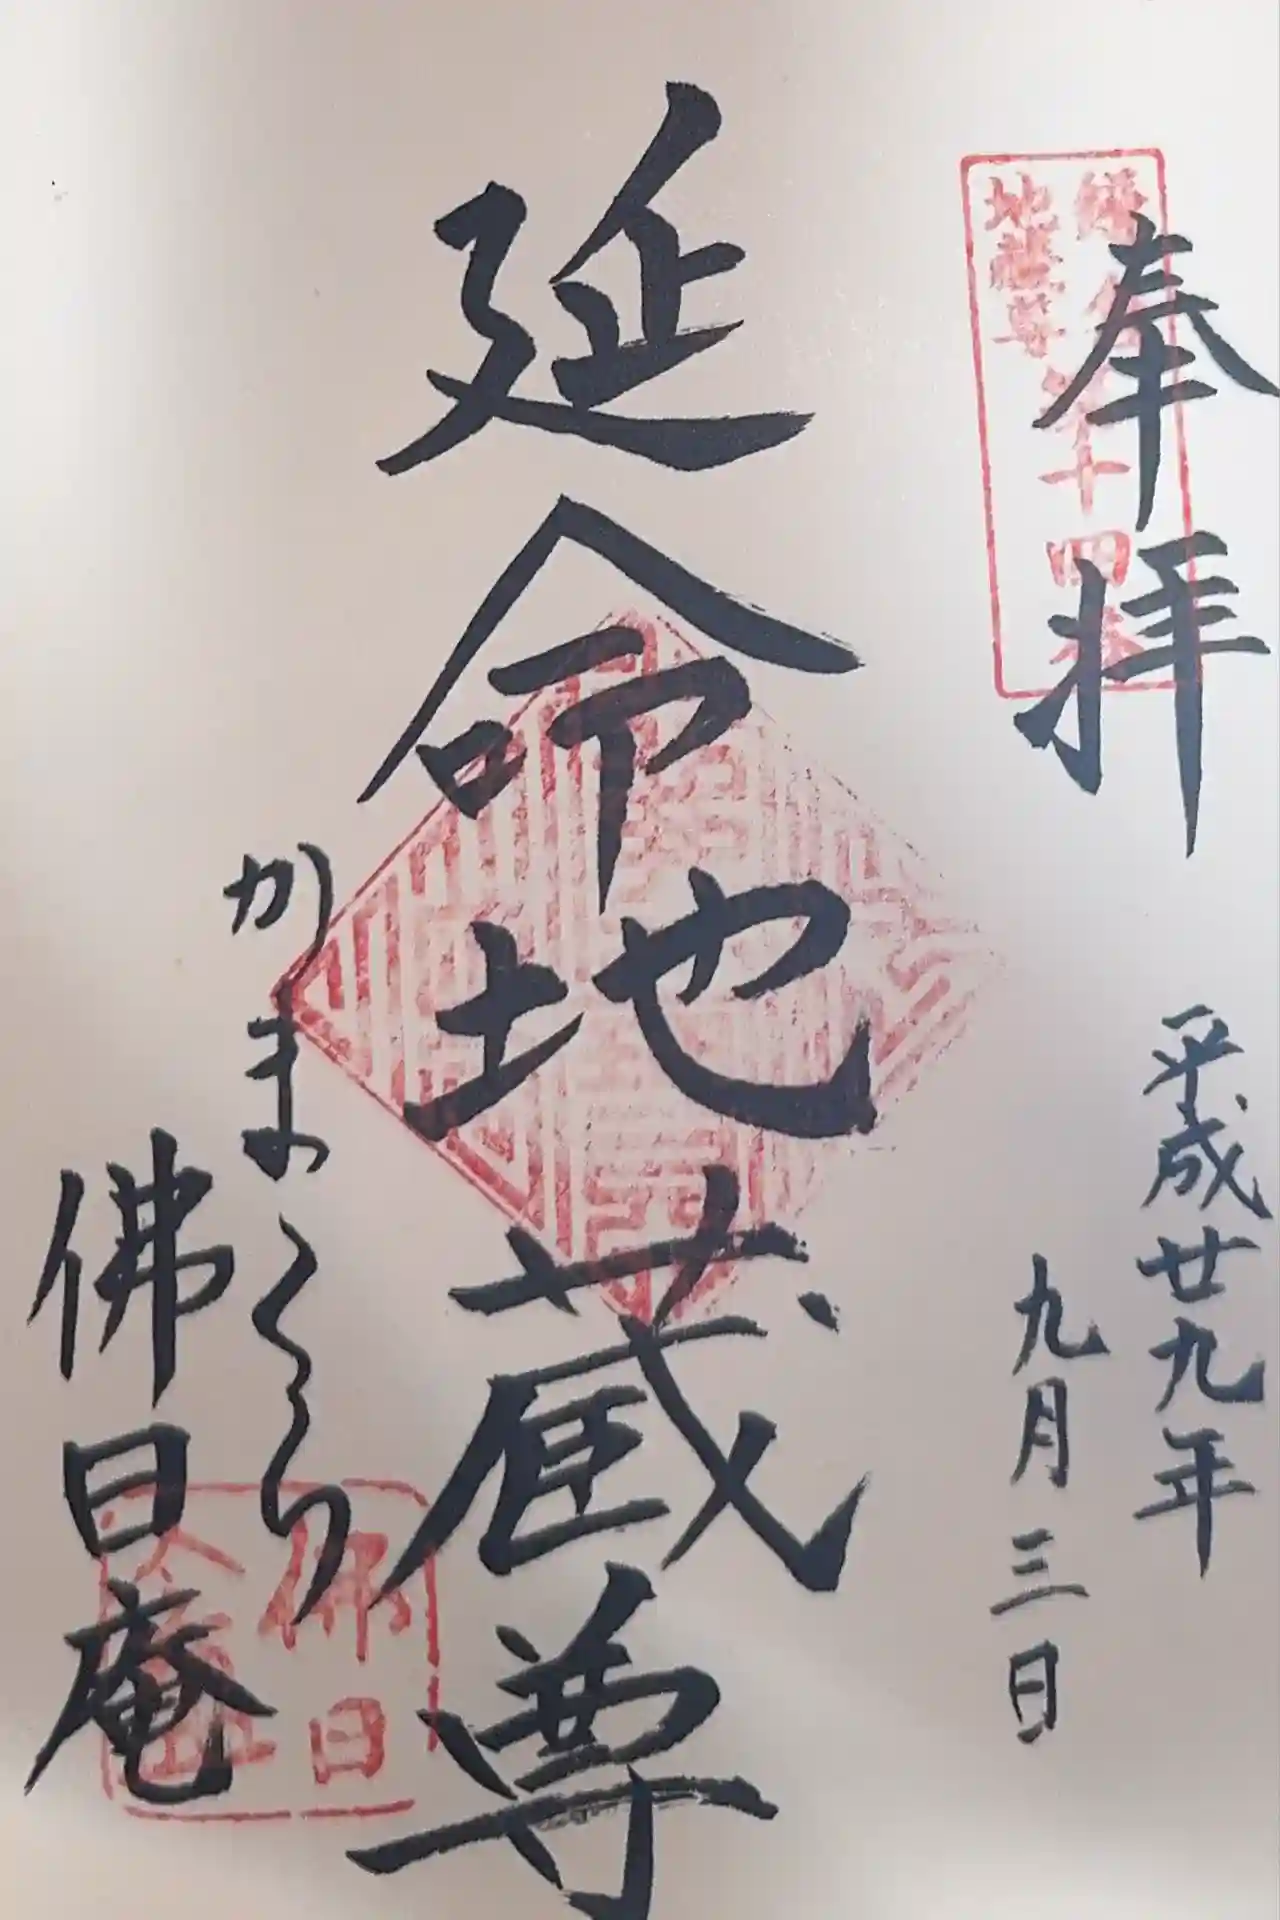 奉拝
平成廿九年
九月三日
鎌倉第十四番
地蔵尊
延命地蔵尊
かまくら
佛日庵
佛日